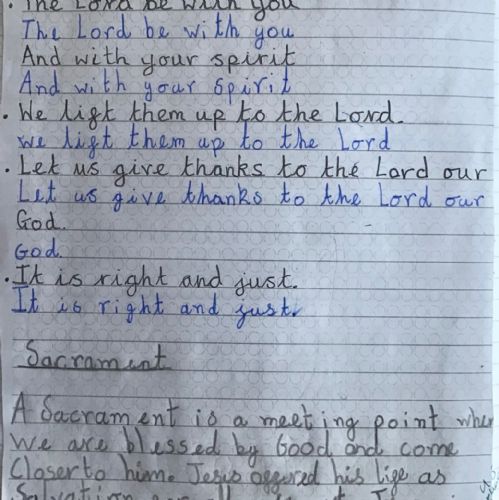 . The Lord be with you
The Lord be with you
And with your spirit
And with your spirit
. We lift them up to the Lord.
We lift them up to the Lord
. Let us give thanks to the Lord our
Let us give thanks to the Lord our
God.
God.
. It is right and just.
It is right and just.
Sacrament
A Sacrament is a meeting point wher
we are blessed by Good and come
Closer to him. Jesus offered his life as
Salvation